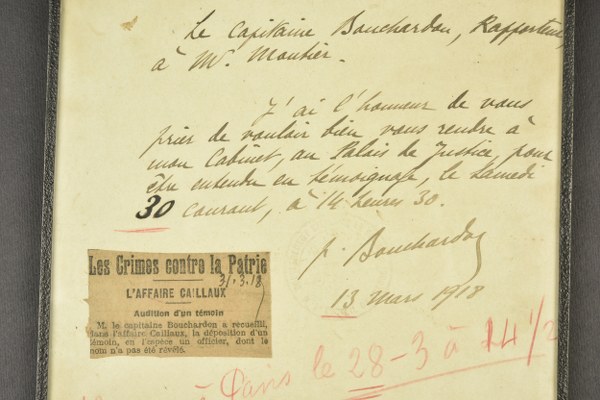 Le Capitaine Bouchardon, Rapporteur,
à Mr. Moutier.
J'ai l'honneur de vous
prier de vouloir bien vous rendre à
mon Cabinet, au Palais de Justice, pour
être entendu en témoignage, le samedi
30 courant, à 14 heures 30.
P. Bouchardon
13 mars 1918
Les Crimes contre la Patrie
31.3.18
L'AFFAIRE CAILLAUX
Audition d'un témoin
M. le capitaine Bouchardon a recueilli,
dans l'affaire Caillaux, la déposition d'un
témoin, en l'espèce un officier, dont le
nom n'a pas été révélé.
à Paris le 28-3 à 14 1/2